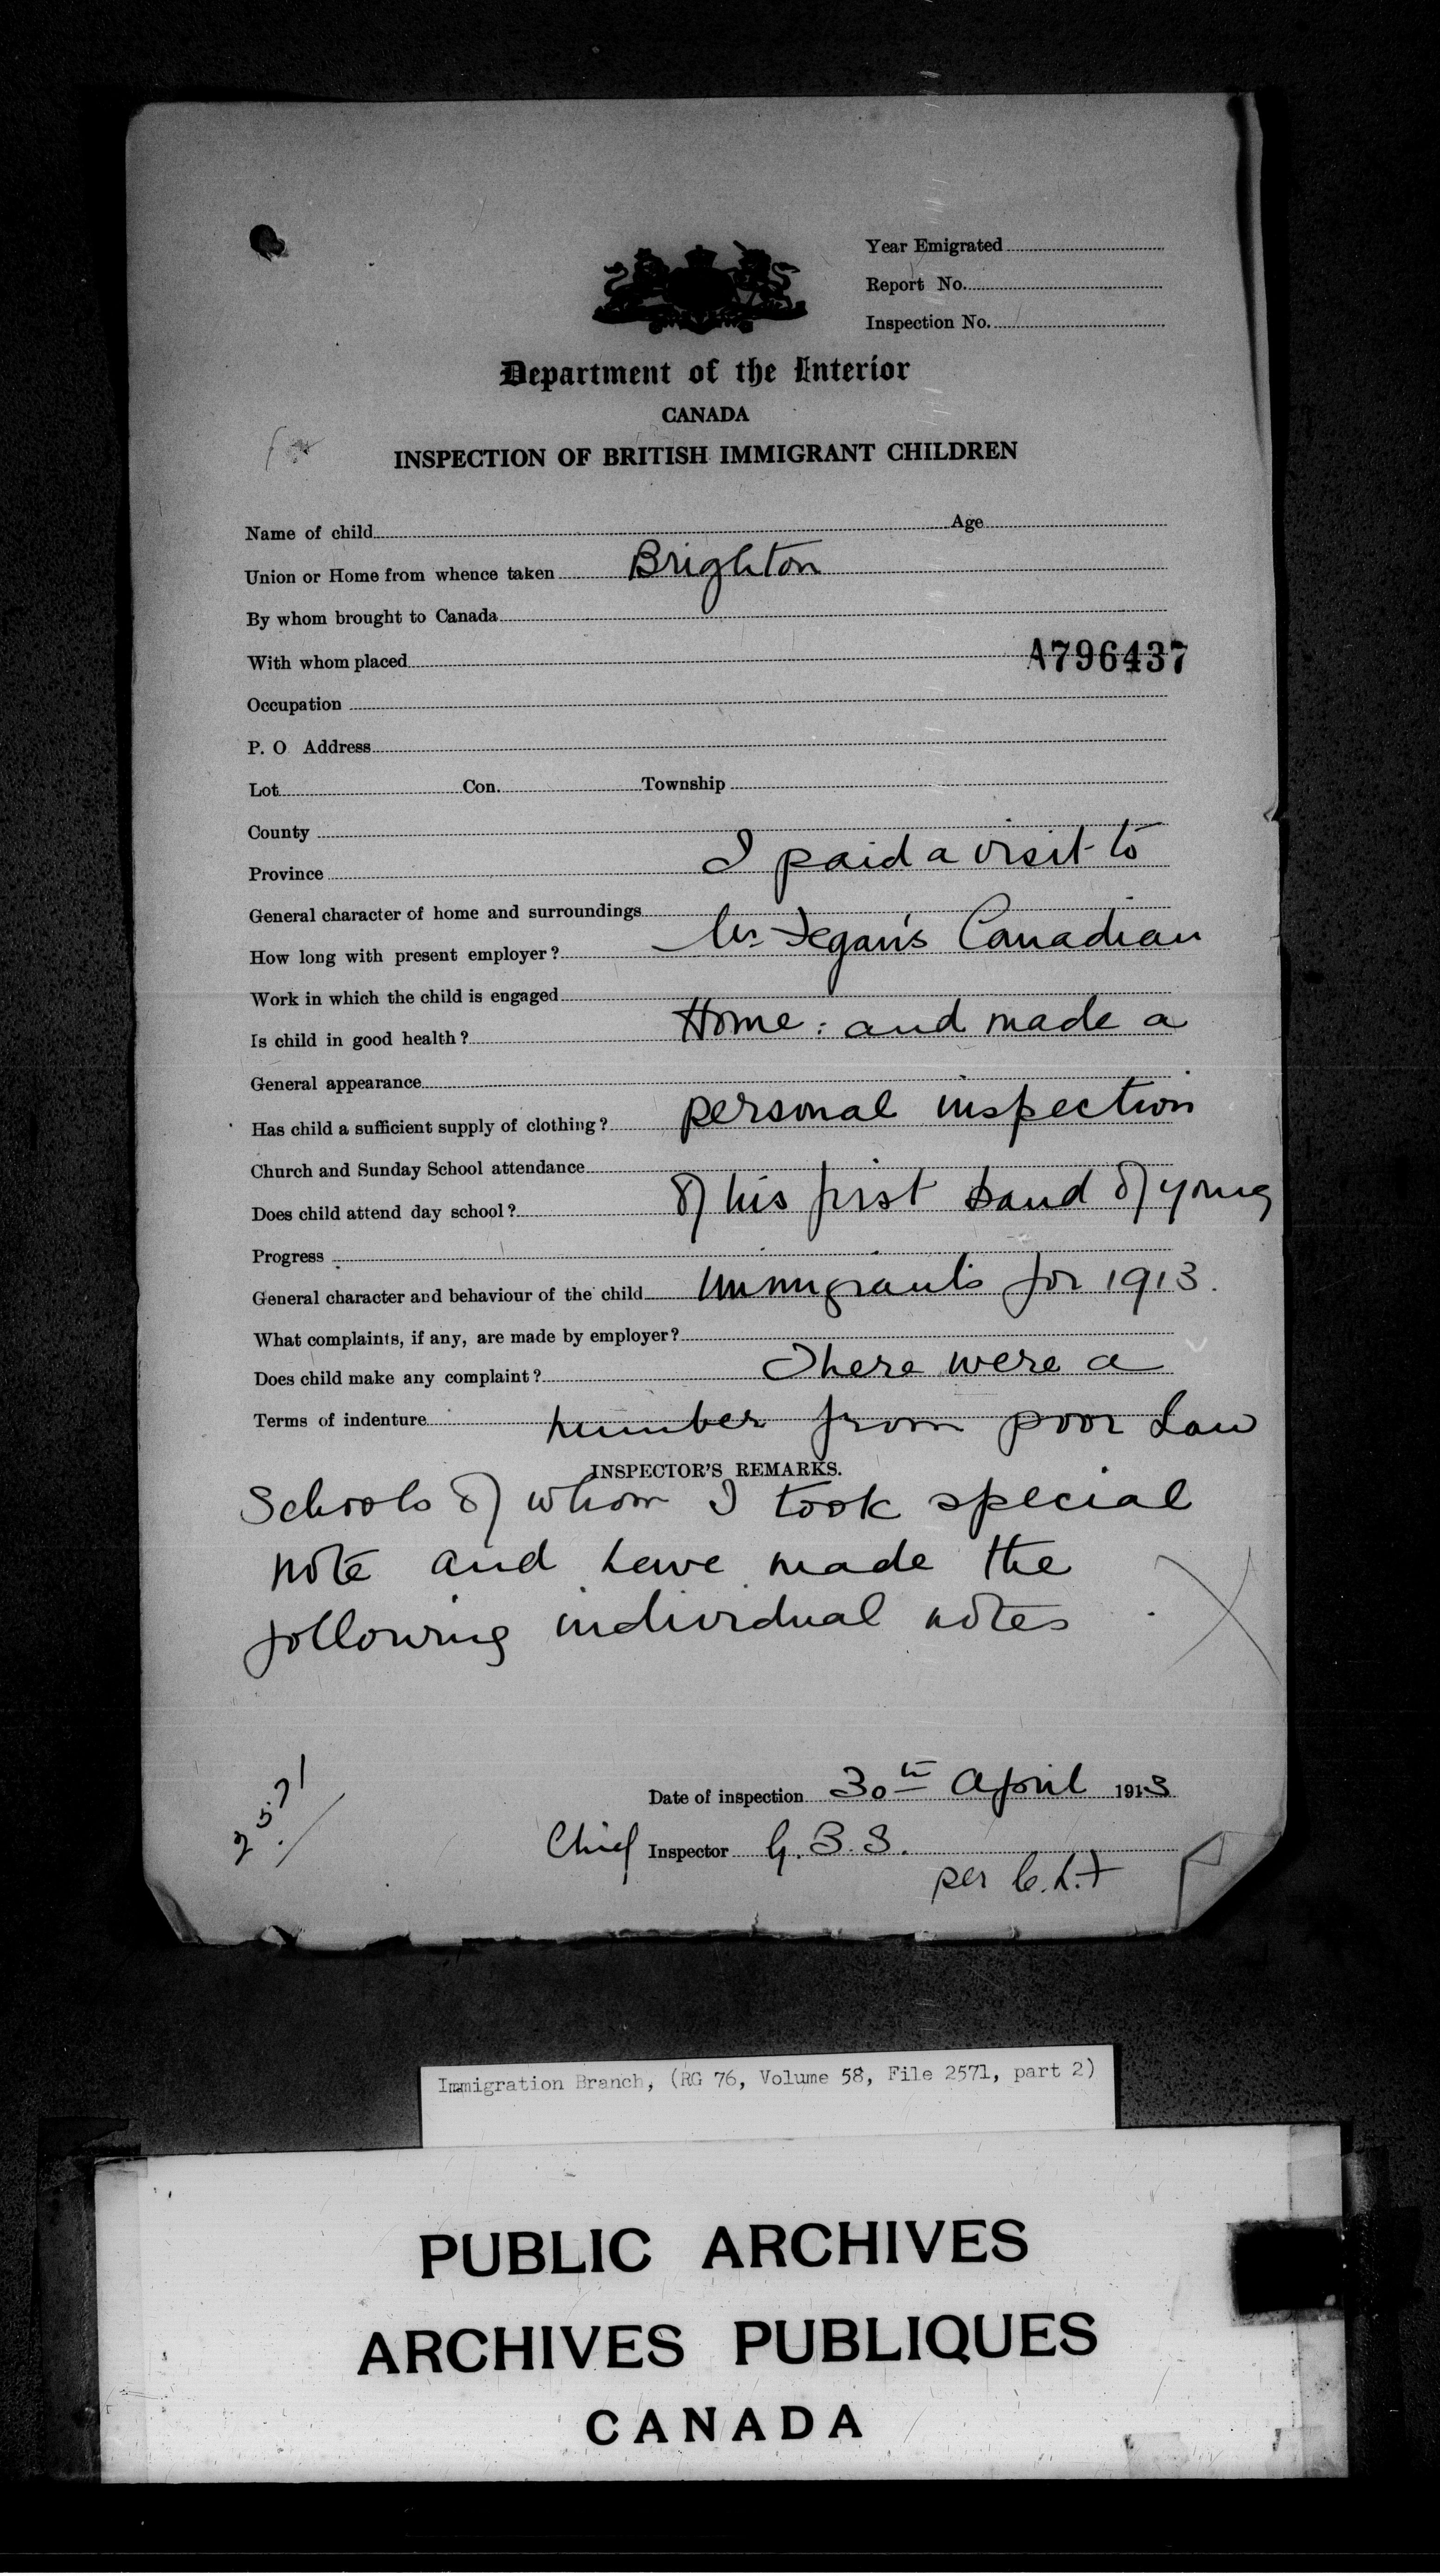 Year Emigrated
Report No.
Inspection No.
Department of the Interior
CANADA
INSPECTION OF BRITISH IMMIGRANT CHILDREN
Name of child Age
Union or Home from whence taken Brighton
By whom brought to Canada
With whom placed A796437
Occupation
P. O Address
Lot Con. Township
County
Province I paid a visit to
General character of home and surroundings
How long with present employer? Mr Fegan's Canadian
Work in which the child is engaged
Is child in good health? Home: and made a
General appearance
Has child a sufficient supply of clothing? personal inspection
Church and Sunday School attendance
Does child attend day school? of his first band of young
Progress
General character and behaviour of the child immigrants for 1913.
What complaints, if any, are made by employer?
Does child make any complaint? There were a
Terms of indenture number from poor Law
INSPECTOR'S REMARKS.
Schools of whom I took special
note and have made the
following individual notes.
Date of inspection 30th April 1913
2571
Chief Inspector G. B. S.
per
Immigration Branch, (RG 76, Volume 58, File 2571, part 2)
PUBLIC ARCHIVES
ARCHIVES PUBLIQUES
CANADA